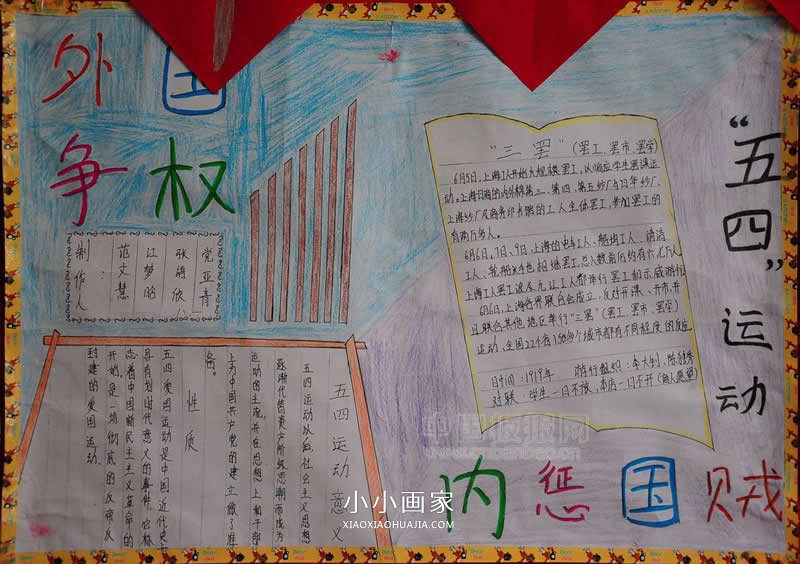 外国
争权
制作人：
党亚青
张海欣
江梦晗
范文慧
“五四”运动
“三罢”（罢工、罢市、罢学）
6月5日，上海工人开始大规模罢工，以响应学生罢课运
动。上海日商的内外棉第三、第四、第五纱厂、日华纱厂、
上海纱厂及商务印书馆的工人全体罢工，参加罢工的
有两万多人。
6月6日、7日、9日，上海的电车工人、船坞工人、清洁
工人、轮船水手也相继罢工，总人数前后约有六七万人
上海工人罢工波及九江工人都举行罢工和示威游行
6月6日，上海各界联合会成立，反对开课、开市，并
且联合其他地区举行“三罢”（罢工、罢市、罢学）
运动，全国22个省150多个城市都有不同程度的反应
时间：1919年 游行组织：李大钊、陈独秀
对联：学生一日不放，本店一日不开
五四运动意义
五四运动以后，社会主义思想
逐渐代替资产阶级思潮而成为
运动的主流，并在思想上和干部
上为中国共产党的建立做了准
备。
性质
五四爱国运动是中国近代史上
具有划时代意义的事件，它标
志着中国新民主主义革命的
开始，是一场彻底的反帝反
封建的爱国运动。
内惩国贼
小小画家
XIAOXIAOHUAJIA.COM